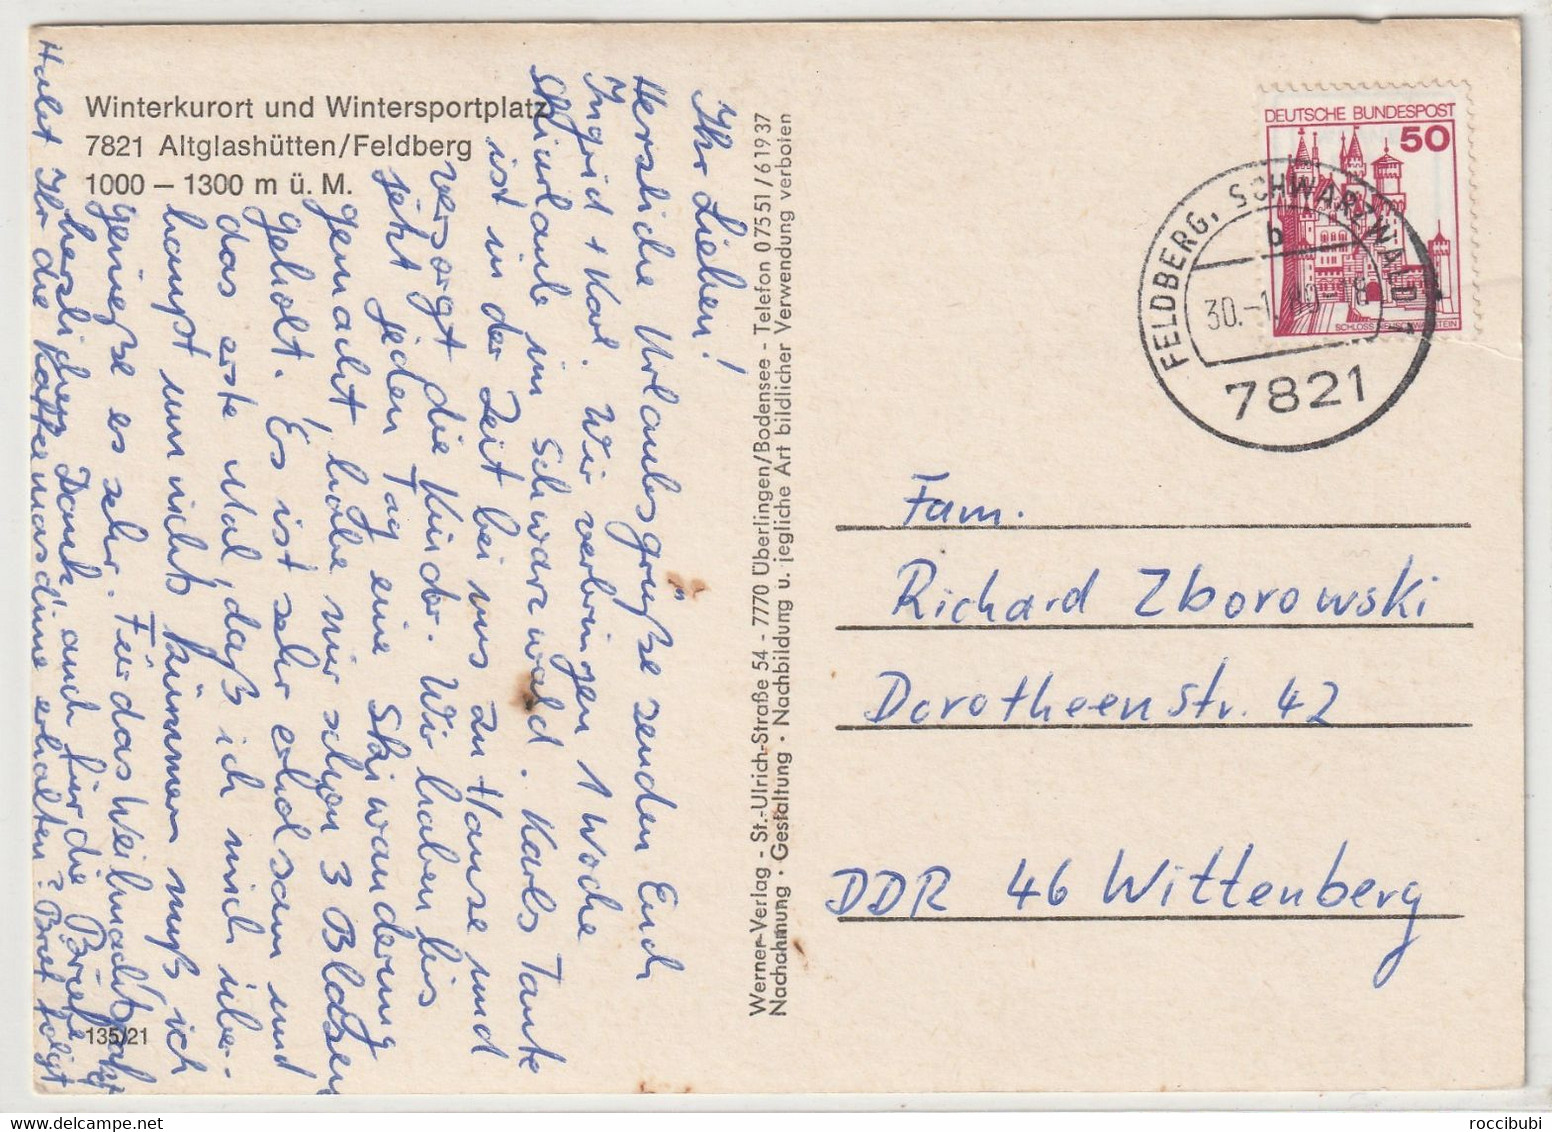 Winterkurort und Wintersportplatz
7821 Altglashütten/Feldberg
1000 – 1300 m ü. M.
Ihr Lieben!
Herzliche Urlaubsgrüße senden Euch
Ingrid + Karl. Wir verbringen 1 Woche
Skiurlaub im Schwarzwald. Karls Tante
ist in der Zeit bei uns zu Hause und
versorgt die Kinder. Wir haben bis
jetzt jeden Tag eine Skiwanderung
gemacht, habe mir schon 3 Blasen
geholt. Es ist sehr erholsam und
das erste Mal, daß ich mich über-
haupt um nichts kümmern muß ich
genieße es sehr. Für das Weihnachtspaket
herzlichen Dank, auch für die Briefe.
Habt Ihr die Kaffeemaschine erhalten? Brief folgt
135/21
Werner-Verlag - St.-Ulrich-Straße 54 - 7770 Überlingen/Bodensee - Telefon 07551/61937
Nachahmung · Gestaltung · Nachbildung u. jegliche Art bildlicher Verwendung verboten
DEUTSCHE BUNDESPOST
50
SCHLOSS NEUSCHWANSTEIN
FELDBERG, SCHWARZWALD 1
b
30.-1. 80-18
7821
Fam.
Richard Zborowski
Dorotheenstr. 42
DDR 46 Wittenberg
roccibubi